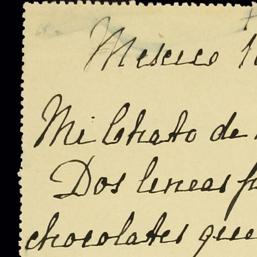 Mexico 1
Mi Chato de
Dos lineas p
chocolates que